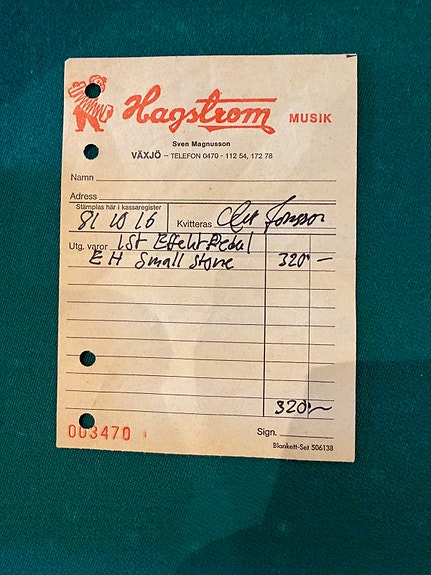 Hagstrom MUSIK
Sven Magnusson
VÄXJÖ – TELEFON 0470 - 112 54, 172 78
Namn
Adress
Stämplas här i kassaregister
81 10 16 Kvitteras
Utg. varor 1 St Effekt Pedal
EH Small stone 320:-
320:-
003470
Sign.
Blankett-Set 506138